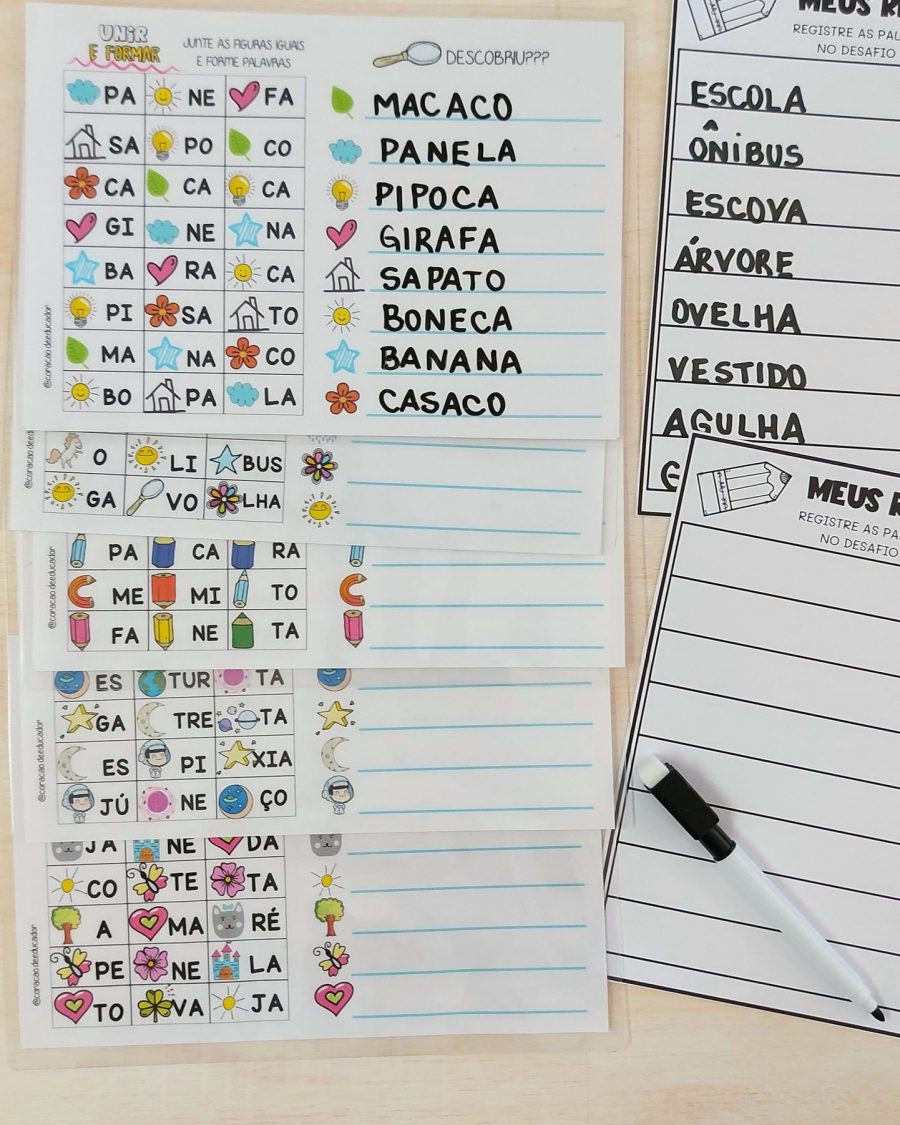 UNIR
E FORMAR
JUNTE AS FIGURAS IGUAIS
E FORME PALAVRAS
DESCOBRIU???
PA NE FA
SA PO CO
CA CA CA
GI NE NA
BA RA CA
PI SA TO
MA NA CO
BO PA LA
@coracaodeeducador
MACACO
PANELA
PIPOCA
GIRAFA
SAPATO
BONECA
BANANA
CASACO
O LI BUS
GA VO LHA
PA CA RA
ME MI TO
FA NE TA
@coracaodeeducador
ES TUR TA
GA TRE TA
ES PI XIA
JÚ NE ÇO
@coracaodeeducador
JA NE DA
CO TE TA
A MA RÉ
PE NE LA
TO VA JA
@coracaodeeducador
MEUS
REGISTRE AS
NO DESAFIO
ESCOLA
ÔNIBUS
ESCOVA
ÁRVORE
OVELHA
VESTIDO
AGULHA
MEUS
REGISTRE AS
NO DESAFIO